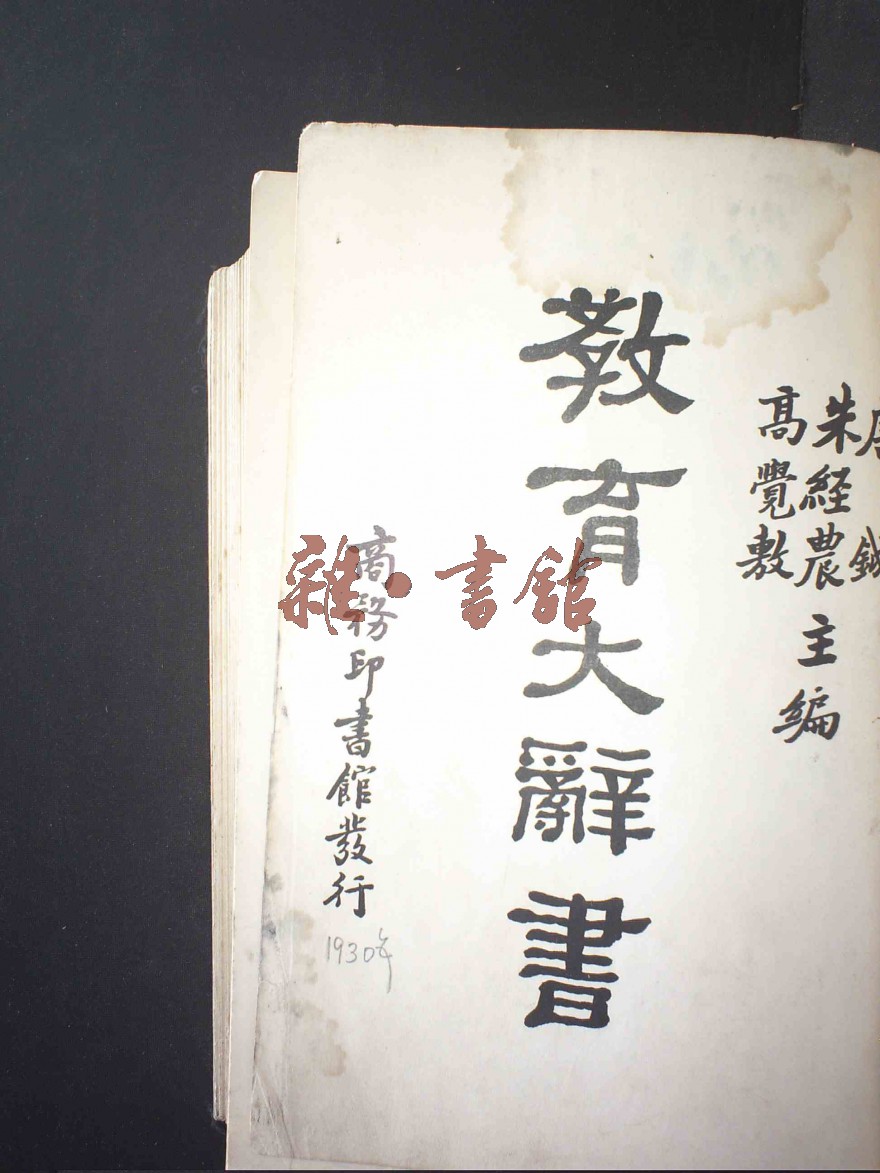 鉞
朱經農
高覺敷
主編
教育大辭書
商務印書館發行
1930年
雜·書館